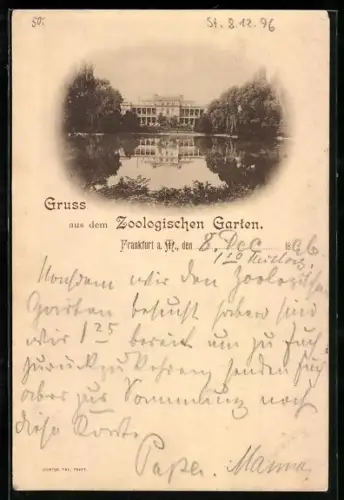 50.
St. 8.12.96
Gruss
aus dem Zoologischen Garten.
Frankfurt a. M., den 8. Dec 1896
1 20 Mittag
Nachdem wir den Zoologischen
Garten besucht haben sind
wir 1 25 bereit um zu Euch
zurückzukehren senden Euch
aber zur Sammlung noch
diese Karte
Papa. Mama